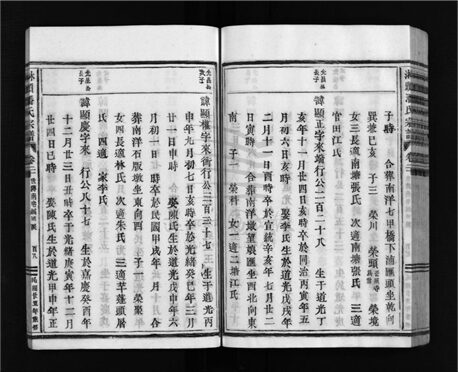 子時　合葬南洋七甲橋下浦匯頭坐乾向
巽兼巳亥　子三　榮川　榮頭　榮境
女三長適南塘張氏　次適南塘張氏　三適
官田江氏
諱顯正字來端行公二百二十八　生于道光丁
亥年十二月廿四日亥時卒於同治丙寅年五
月初六日亥時　娶李氏生於道光戊戌年
二月十一日酉時卒於宣統辛亥年七月廿二
日寅時　合葬南洋墩望娘匯坐西北向東
南　子一　榮科　女一適二塘江氏
諱顯權字來衡行公二百三十七　生于道光丙
申年九月初七日亥時卒於光緒癸巳年三月
廿一日申時　娶陳氏生於道光戊申年六
月初一日　時卒於民國甲戌年　月　日
葬南洋石版墩坐東向西　子一　榮聚
女四長適林氏　次適朱氏　三適芊蓬頭屠
氏　四適　家李氏
諱顯慶字來　行公八十七　生於嘉慶癸酉年
十二月廿三日丑時卒于光緒庚寅年十二月
廿四日巳時　娶陳氏生於道光甲申年正
林頭潘氏宗譜　卷二